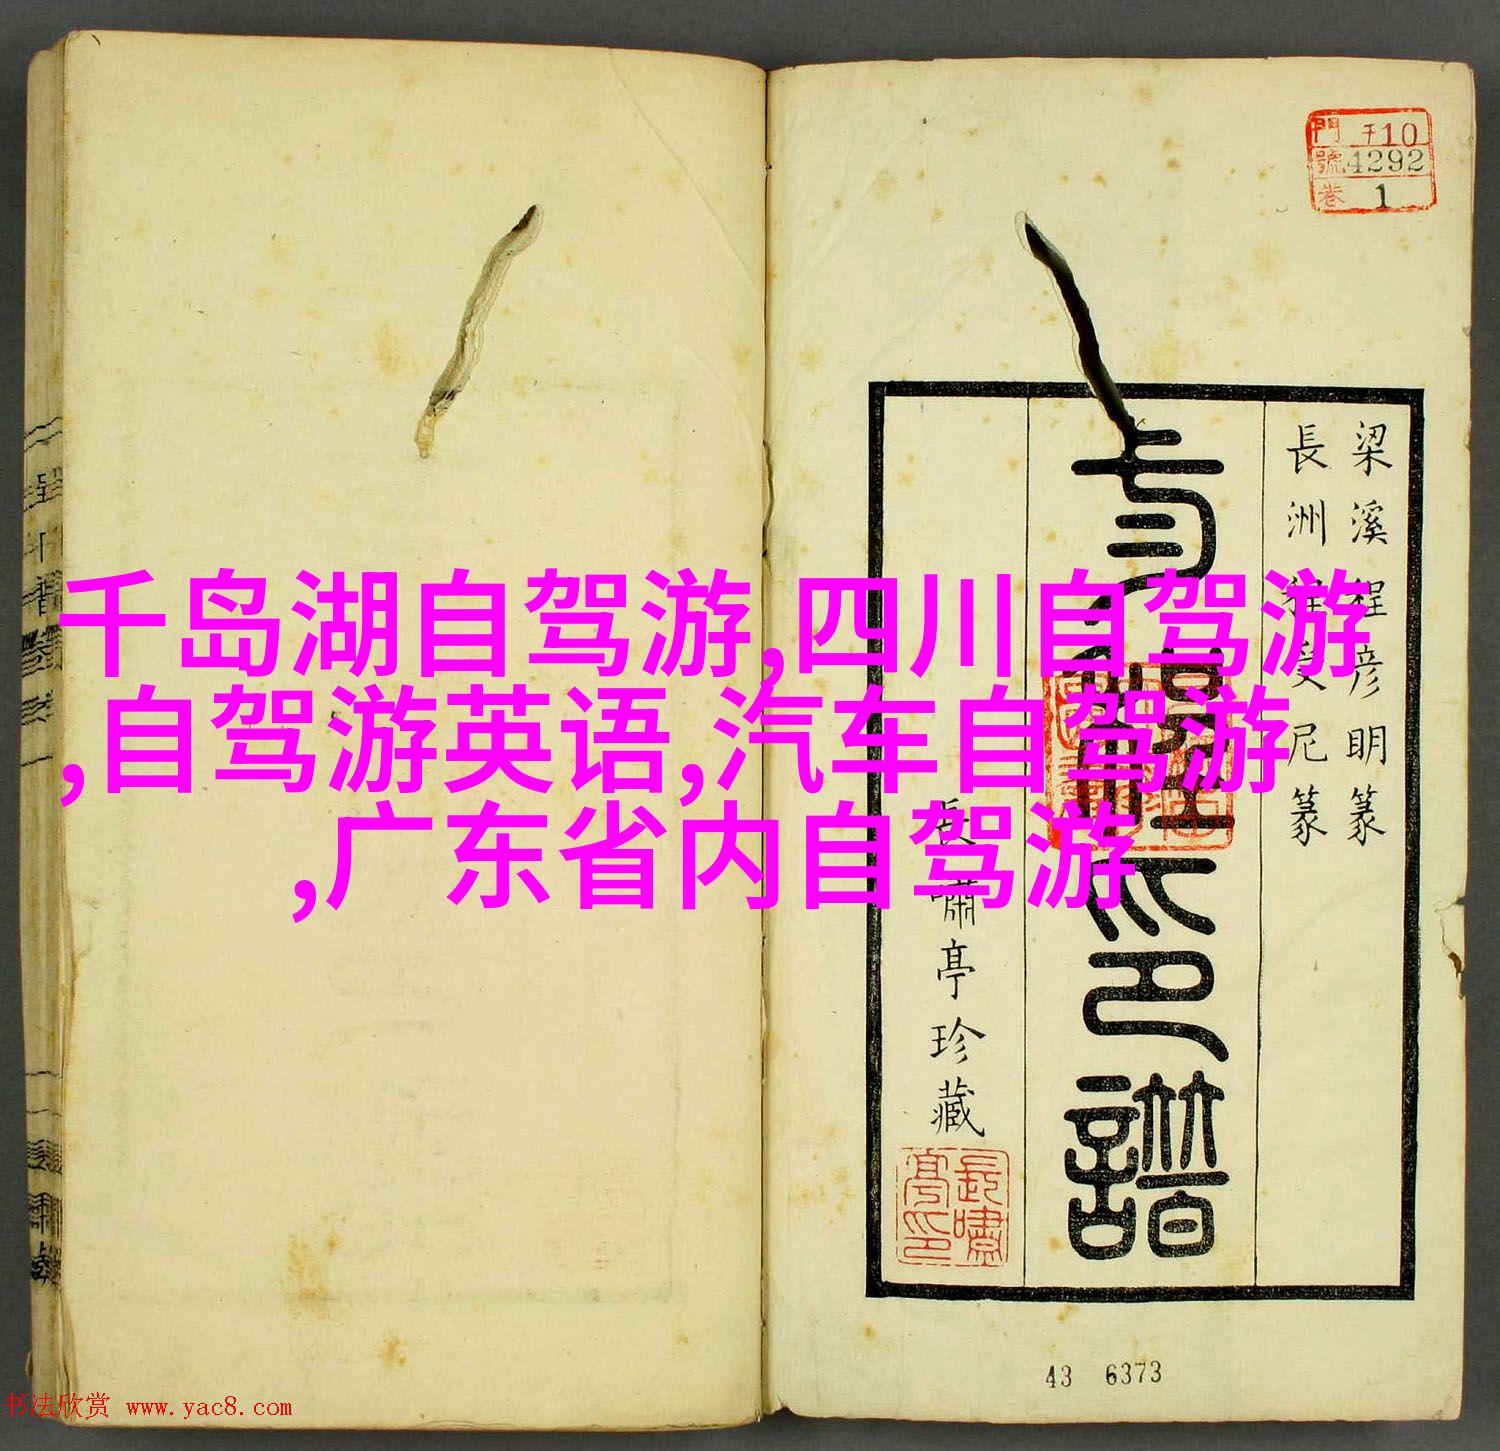 門 千10
號 4292
卷 1
梁溪程彦明篆
長洲程受尼篆
印譜
長嘯亭珍藏
長嘯亭印
千岛湖自驾游,四川自驾游
,自驾游英语,汽车自驾游
,广东省内自驾游
43 6373
书法欣赏 www.yac8.com